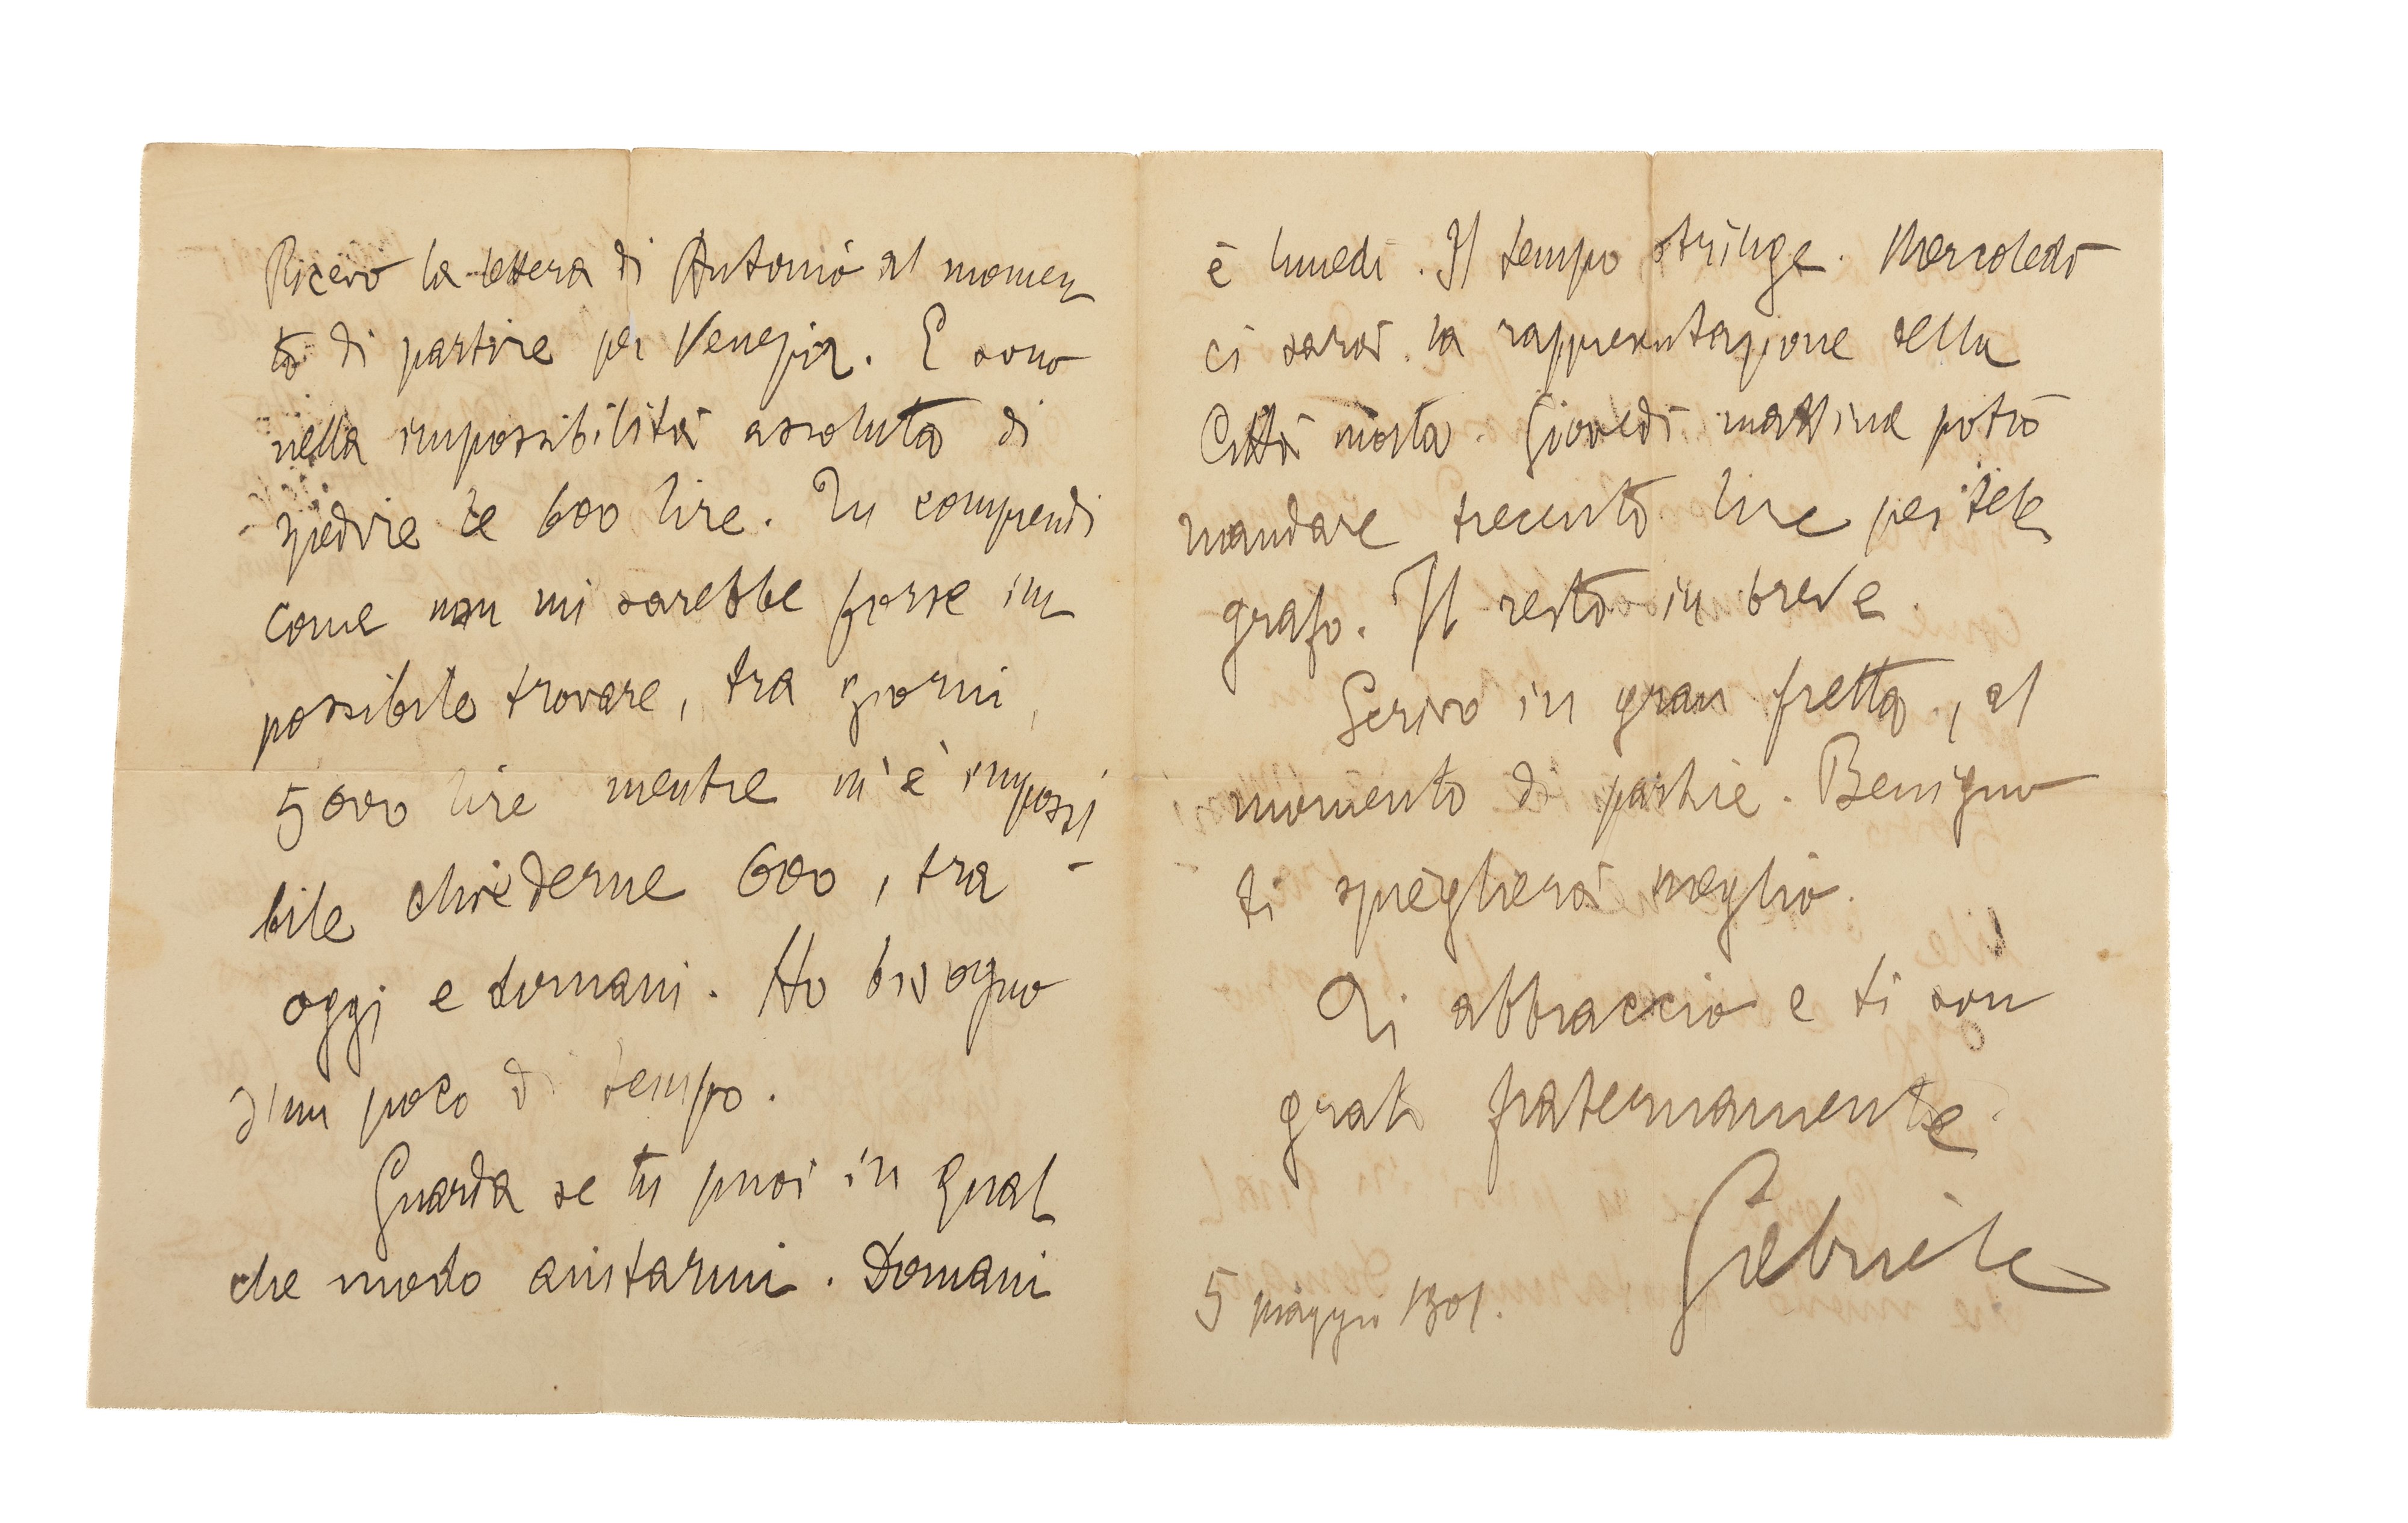 Ricevo la lettera di Antonio al momen
to di partire per Venezia. E sono
nella impossibilità assoluta di
spedire le 600 lire. Tu comprendi
come non mi sarebbe forse im
possibile trovare, tra giorni,
5000 lire mentre m'è impossi
bile chiederne 600, tra -
oggi e domani. Ho bisogno
d'un poco di tempo.
Guarda se tu puoi in qual
che modo aiutarmi. Domani
è lunedì. Il tempo stringe. Mercoledì
ci sarà la rappresentazione della
Città morta. Giovedì mattina potrò
mandare trecento lire per tele
grafo. Il resto in breve.
Scrivo in gran fretta, al
momento di partire. Benigno
ti spiegherà meglio.
Ti abbraccio e ti son
grato fraternamente.
Gabriele
5 maggio 1901.